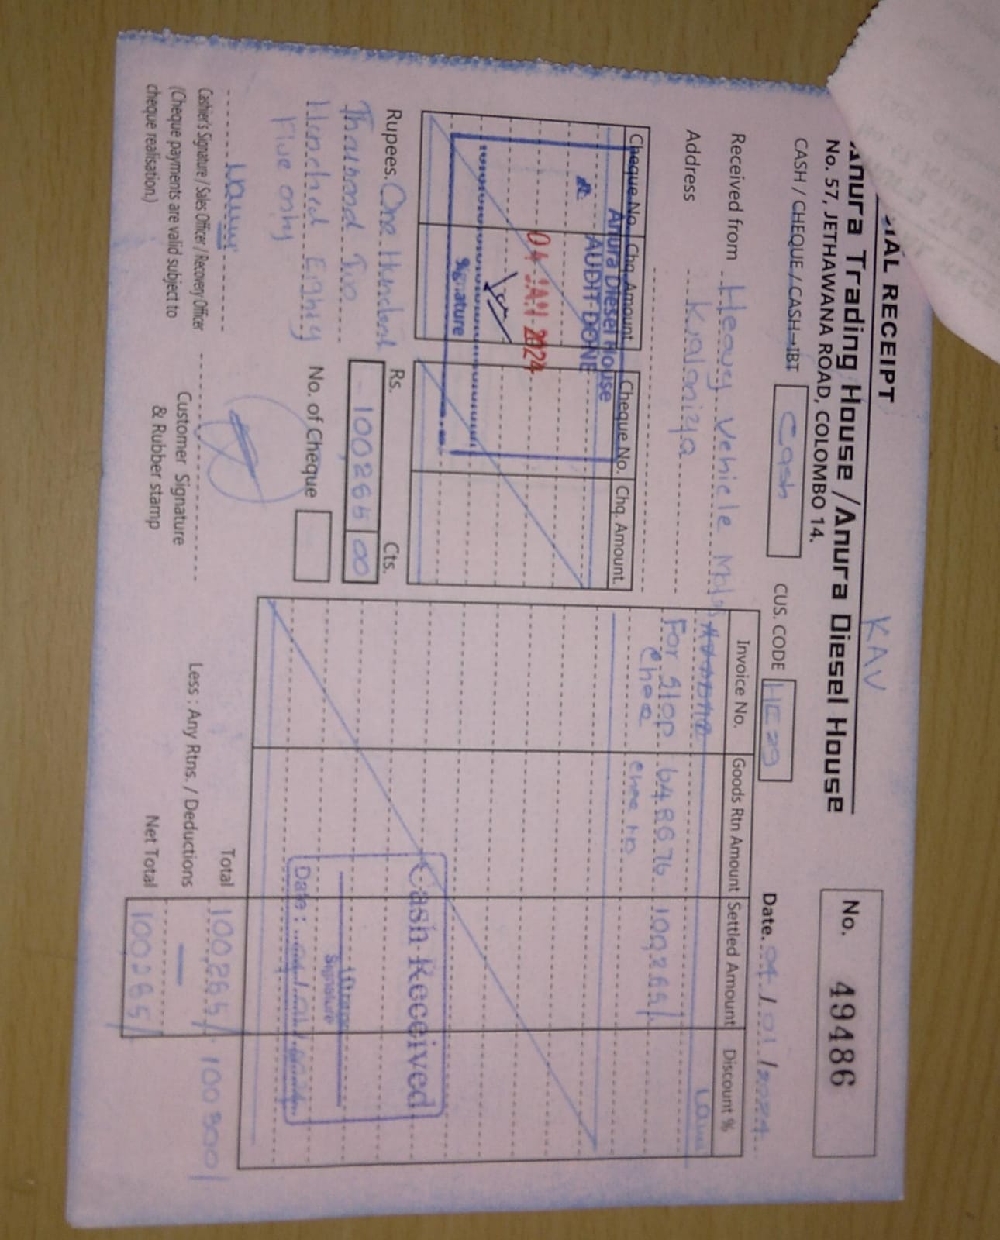 IAL RECEIPT
KAV
Anura Trading House /Anura Diesel House
No. 57, JETHAWANA ROAD, COLOMBO 14.
No. 49486
CASH / CHEQUE / CASH-IBT
Cash
CUS. CODE HE 29
Date. 04 / 01 / 2024
Received from Heavy Vehicle
Address Kalaniya
Cheque No. Chq. Amount. Cheque No. Chq. Amount.
Anura Diesel House
AUDIT DONE
04 JAN 2024
Signature
Invoice No. Goods Rtn Amount Settled Amount Discount %
For Stop 648676 100,265/
chea
chea
Rupees. One Hundred
Thousand Two
Hundred Eighty
Five only
Rs. Cts.
100,265 00
No. of Cheque
Cash Received
Signature
Date :
Total 100,265/ 100 300/
Less : Any Rtns. / Deductions —
Net Total 100265/
Cashier's Signature / Sales Officer / Recovery Officer
(Cheque payments are valid subject to
cheque realisation.)
Customer Signature
& Rubber stamp